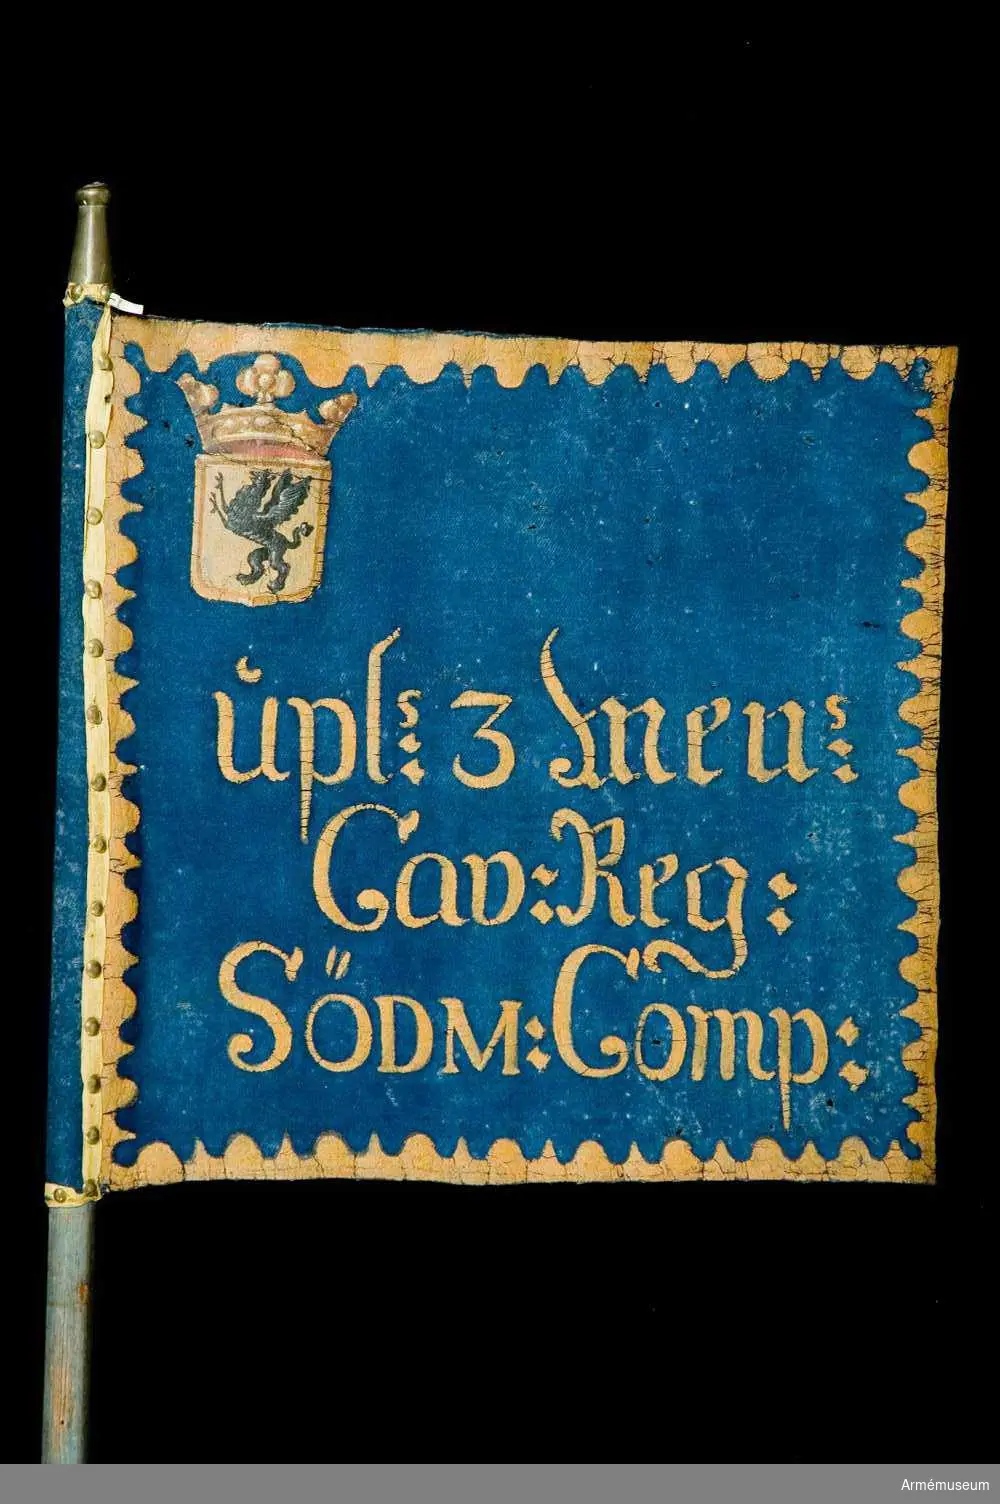 ůpl:s 3 Mneu:s
Cav: Reg:
SÖDM: Comp:
Armémuseum